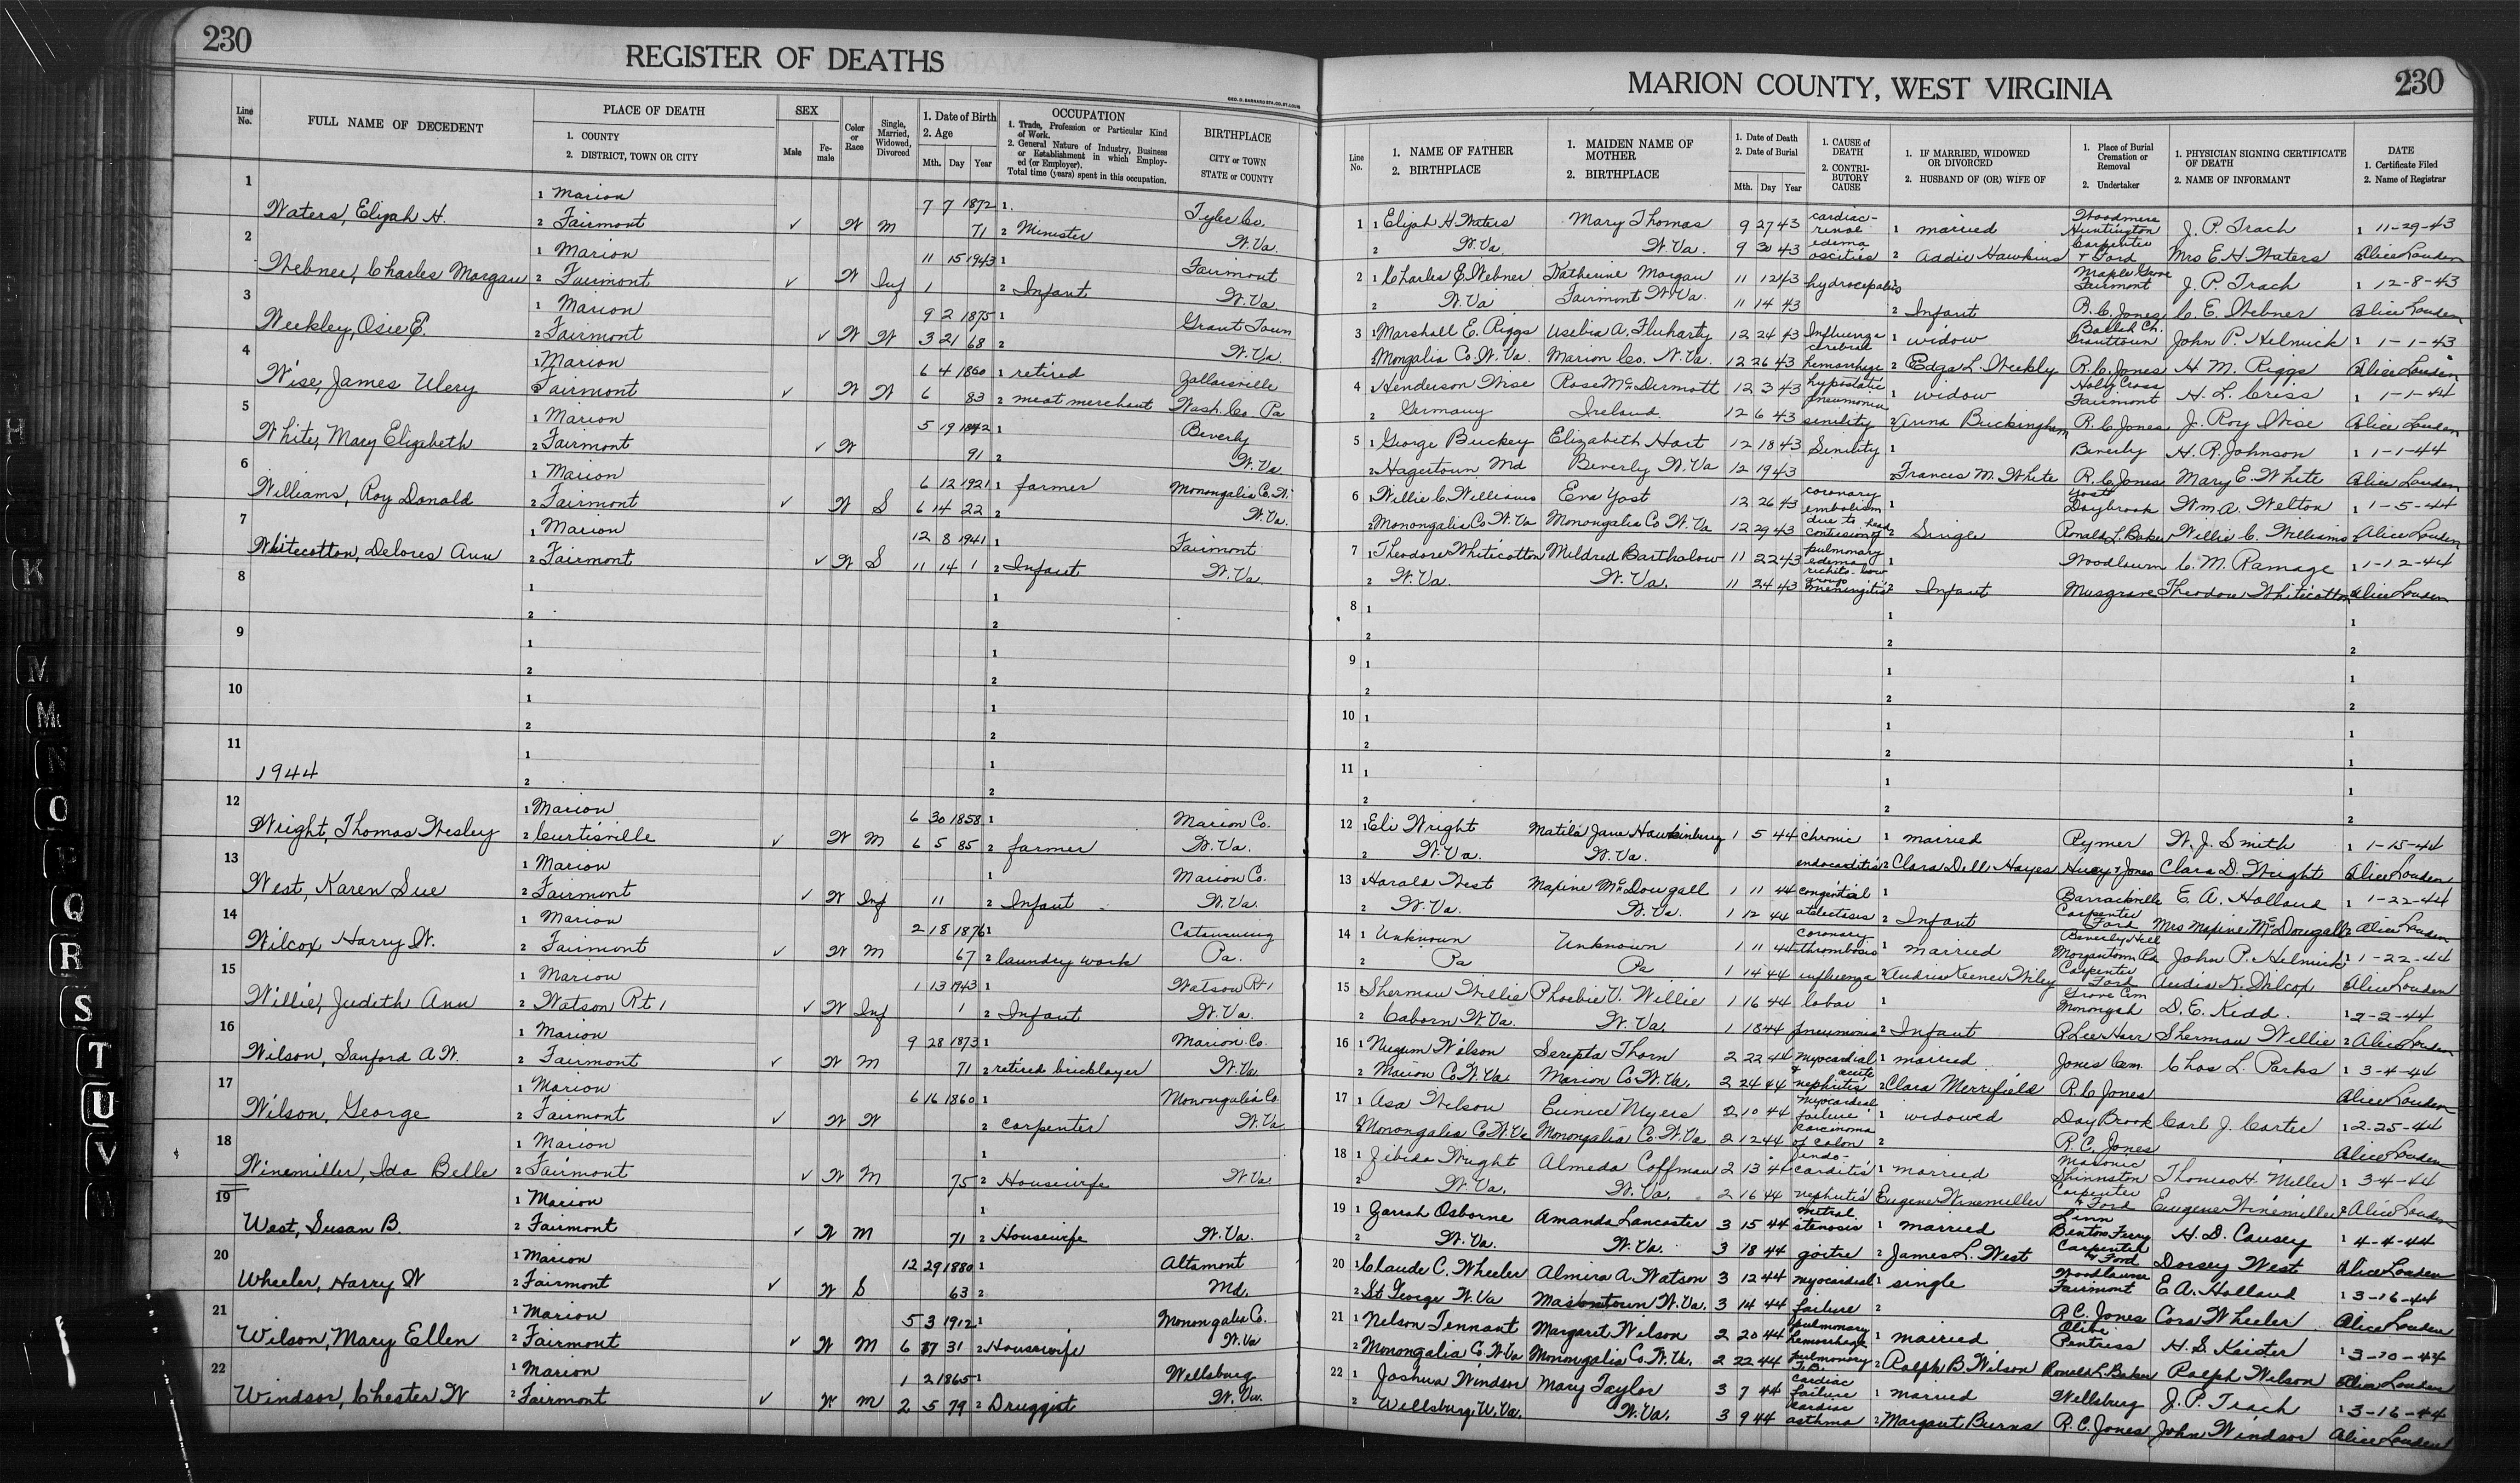 230
REGISTER OF DEATHS
GEO. D. BARNARD STA. CO. ST. LOUIS
Line No.
FULL NAME OF DECEDENT
PLACE OF DEATH
1. COUNTY
2. DISTRICT, TOWN OR CITY
SEX
Male
Fe-male
Color or Race
Single, Married, Widowed, Divorced
1. Date of Birth
2. Age
Mth. Day Year
OCCUPATION
1. Trade, Profession or Particular Kind of Work.
2. General Nature of Industry, Business or Establishment in which Employed (or Employer).
Total time (years) spent in this occupation.
BIRTHPLACE
CITY or TOWN
STATE or COUNTY
1 1 Marion 7 7 1872 1. Tyler Co.
Waters, Elijah H. 2 Fairmont ✓ W M 71 2 Minister W. Va.
2 1 Marion 11 15 1943 1 Fairmont
Webner, Charles Morgan 2 Fairmont ✓ W Inf 1 2 Infant W. Va.
3 1 Marion 9 2 1875 1 Grant Town
Weekley, Osie E. 2 Fairmont ✓ W W 3 21 68 2 W. Va.
4 1 Marion 6 4 1860 1 retired
Wise, James Ulery Fairmont ✓ W W 6 83 2 meat merchant Wash. Co. Pa
5 1 Marion 5 19 1842 1 Beverly
White, Mary Elizabeth 2 Fairmont ✓ W 91 2 W. Va
6 1 Marion 6 12 1921 1 farmer Monongalia Co. W.
Williams, Roy Donald 2 Fairmont ✓ W S 6 14 22 2 W. Va.
7 1 Marion 12 8 1941 1 Fairmont
Whitecotton, Delores Ann 2 Fairmont ✓ W S 11 14 1 2 Infant W. Va.
8 1 1
2 2
9 1 1
2 2
10 1 1
2 2
11 1 1
1944 2 2
12 1 Marion 6 30 1858 1 Marion Co.
Wright, Thomas Wesley 2 Curtisville ✓ W M 6 5 85 2 farmer W. Va.
13 1 Marion 1 Marion Co.
West, Karen Sue 2 Fairmont ✓ W Inf 11 2 Infant W. Va.
14 1 Marion 2 18 1876 1
Wilcox, Harry W. 2 Fairmont ✓ W M 67 2 laundry work Pa.
15 1 Marion 1 13 1943 1 Watson Rt 1
Willie, Judith Ann 2 Watson Rt 1 ✓ W Inf 1 2 Infant W. Va.
16 1 Marion 9 28 1873 1 Marion Co.
Wilson, Sanford A. W. 2 Fairmont ✓ W M 71 2 retired bricklayer W. Va
17 1 Marion 6 16 1860 1 Monongalia Co
Wilson, George 2 Fairmont ✓ W W 2 carpenter W. Va
18 1 Marion 1
Winemiller, Ida Belle 2 Fairmont ✓ W M 75 2 Housewife W. Va.
19 1 Marion 1
West, Susan B. 2 Fairmont ✓ W M 71 2 Housewife W. Va.
20 1 Marion 12 29 1880 1 Altamont
Wheeler, Harry W 2 Fairmont ✓ W S 63 2 Md.
21 1 Marion 5 3 1912 1 Monongalia Co.
Wilson, Mary Ellen 2 Fairmont ✓ W M 6 17 31 2 Housewife W. Va
22 1 Marion 1 2 1865 1 Wellsburg
Windsor, Chester W 2 Fairmont ✓ W M 2 5 79 2 Druggist W. Va.
230
MARION COUNTY, WEST VIRGINIA
Line No.
1. NAME OF FATHER
2. BIRTHPLACE
1. MAIDEN NAME OF MOTHER
2. BIRTHPLACE
1. Date of Death
2. Date of Burial
Mth. Day Year
1. CAUSE of DEATH
2. CONTRIBUTORY CAUSE
1. IF MARRIED, WIDOWED OR DIVORCED
2. HUSBAND OF (OR) WIFE OF
1. Place of Burial Cremation or Removal
2. Undertaker
1. PHYSICIAN SIGNING CERTIFICATE OF DEATH
2. NAME OF INFORMANT
DATE
1. Certificate Filed
2. Name of Registrar
1 1 Elijah H Waters Mary Thomas 9 27 43 cardiac-renal 1 married Woodmere Huntington J. P. Trach 1 11-29-43
2 W. Va. W. Va. 9 30 43 edema ascities 2 Addie Hawkins Carpenter + Ford Mrs E. H. Waters Alice Louden
2 1 Charles E. Webner Katherine Morgan 11 12 43 hydrocepalis Maple Grove Fairmont J. P. Trach 1 12-8-43
2 W. Va Fairmont W. Va. 11 14 43 2 Infant R. C. Jones C. E. Webner Alice Louden
3 1 Marshall E. Riggs Usebia A. Fluharty 12 24 43 Influenza 1 widow Ballah Ch. Granttown John P. Helmick 1 1-1-43
2 Mongalia Co. W. Va. Marion Co. W. Va. 12 26 43 cerebral hemorrhage 2 Edga L. Weekly R. C. Jones H. M. Riggs Alice Louden
4 1 Henderson Wise Rose McDermott 12 3 43 hypostatic pneumonia 1 widow Holy Cross Fairmont H. L. Criss 1 1-1-44
2 Germany Ireland 12 6 43 senility 2 Buckingham R. C. Jones J. Roy Wise Alice Louden
5 1 George Buckey Elizabeth Hart 12 18 43 Senility 1 Beverly H. R. Johnson 1 1-1-44
2 Hagertown Md Beverly W. Va 12 19 43 2 Frances M. White R. C. Jones Mary E. White Alice Louden
6 1 Willie C. Williams Ena Yost 12 26 43 coronary embolism 1 Yost Daybrook Wm. A. Welton 1 1-5-44
2 Monongalia Co W. Va Monongalia Co W. Va 12 29 43 due to head contusions 2 Single Ronald L. Baker Willie C. Williams 2 Alice Louden
7 1 Theodore Whiticotton Mildred Barthalow 11 22 43 pulmonary edema 1 Woodlawn C. M. Ramage 1 1-12-44
2 W. Va. W. Va. 11 24 43 meningitis 2 Infant Musgrave Theodore Whitecotton Alice Louden
8 1 1 1
2 2 2
9 1 1 1
2 2 2
10 1 1 1
2 2 2
11 1 1 1
2 2 2
12 1 Eli Wright Matila Jane Hawkinbury 1 5 44 chronic 1 married Rymer W. J. Smith 1 1-15-44
2 W. Va. W. Va. endocarditis 2 Clara Dell Hayes Huey + Jones Clara D. Wright Alice Louden
13 1 Harald West Maxine McDougall 1 11 44 congential 1 Barrackville E. A. Holland 1 1-22-44
2 W. Va. W. Va. 1 12 44 atelectasis 2 Infant Carpenter + Ford Mrs Maxine McDougall 2 Alice Louden
14 1 Unknown Unknown 1 11 44 coronary thrombosis 1 married Beverly Hill Morgantown Rd John P. Helmick 1 1-22-44
2 Pa Pa 1 14 44 influenza 2 Wiley Carpenter + Ford Audie K. Wilcox Alice Louden
15 1 Sherman Willie Phoebie V. Willie 1 16 44 lobar 1 Grove Cem Monongah D. E. Kidd. 1 2-2-44
2 Caborn W. Va. W. Va. 1 18 44 pneumonia 2 Infant P Lee Harr Sherman Willie 2 Alice Louden
16 1 Nugum Wilson Serepta Thorn 2 22 44 myocardial 1 married Jones Cem. Chas L. Parks 1 3-4-44
2 Marion Co W. Va Marion Co. W. Va. 2 24 44 + acute nephritis 2 Clara Merrifield R. C. Jones Alice Louden
17 1 Asa Wilson Eunice Myers 2 10 44 myocardial failure 1 widowed Day Brook Carl J. Carter 1 2-25-44
2 Monongalia Co. W. Va Monongalia Co. W. Va 2 12 44 carcinoma of colon 2 R. C. Jones Alice Louden
18 1 Zibeda Wright Almeda Coffman 2 13 44 endo-carditis 1 married Masonic Shinnston Thomas H. Miller 1 3-4-44
2 W. Va. W. Va. 2 16 44 nephritis Eugene Winemiller Carpenter + Ford Eugene Winemiller 2 Alice Louden
19 1 Zarrah Osborne Amanda Lancaster 3 15 44 mitral stenosis 1 married Linn Benton Ferry H. D. Causey 1 4-4-44
2 W. Va. W. Va. 3 18 44 goitre 2 James L. West Carpenter + Ford Dorsey West Alice Louden
20 1 Claude C. Wheeler Almira A. Watson 3 12 44 myocardial 1 single Woodlawn Fairmont E. A. Holland 1 3-16-44
2 St George W. Va Masontown W. Va. 3 14 44 failure 2 R. C. Jones Cora Wheeler Alice Louden
21 1 Nelson Tennant Margaret Wilson 2 20 44 pulmonary hemorrhage 1 married Olive Pentress H. S. Keister 1 3-10-44
2 Monongalia Co. W. Va Monongalia Co. W. Va. 2 22 44 pulmonary T.B. 2 Ralph B. Wilson Ronald L. Baker Ralph Wilson Alice Louden
22 1 Joshua Windsor Mary Taylor 3 7 44 cardiac failure 1 married Wellsburg J. P. Trach 1 3-16-44
2 Wellsburg, W. Va. W. Va. 3 9 44 cardiac asthma 2 Margaret Burns R. C. Jones John Windsor Alice Louden
H
K
M
Mc
N
O
P
Q
R
S
T
U
V
W